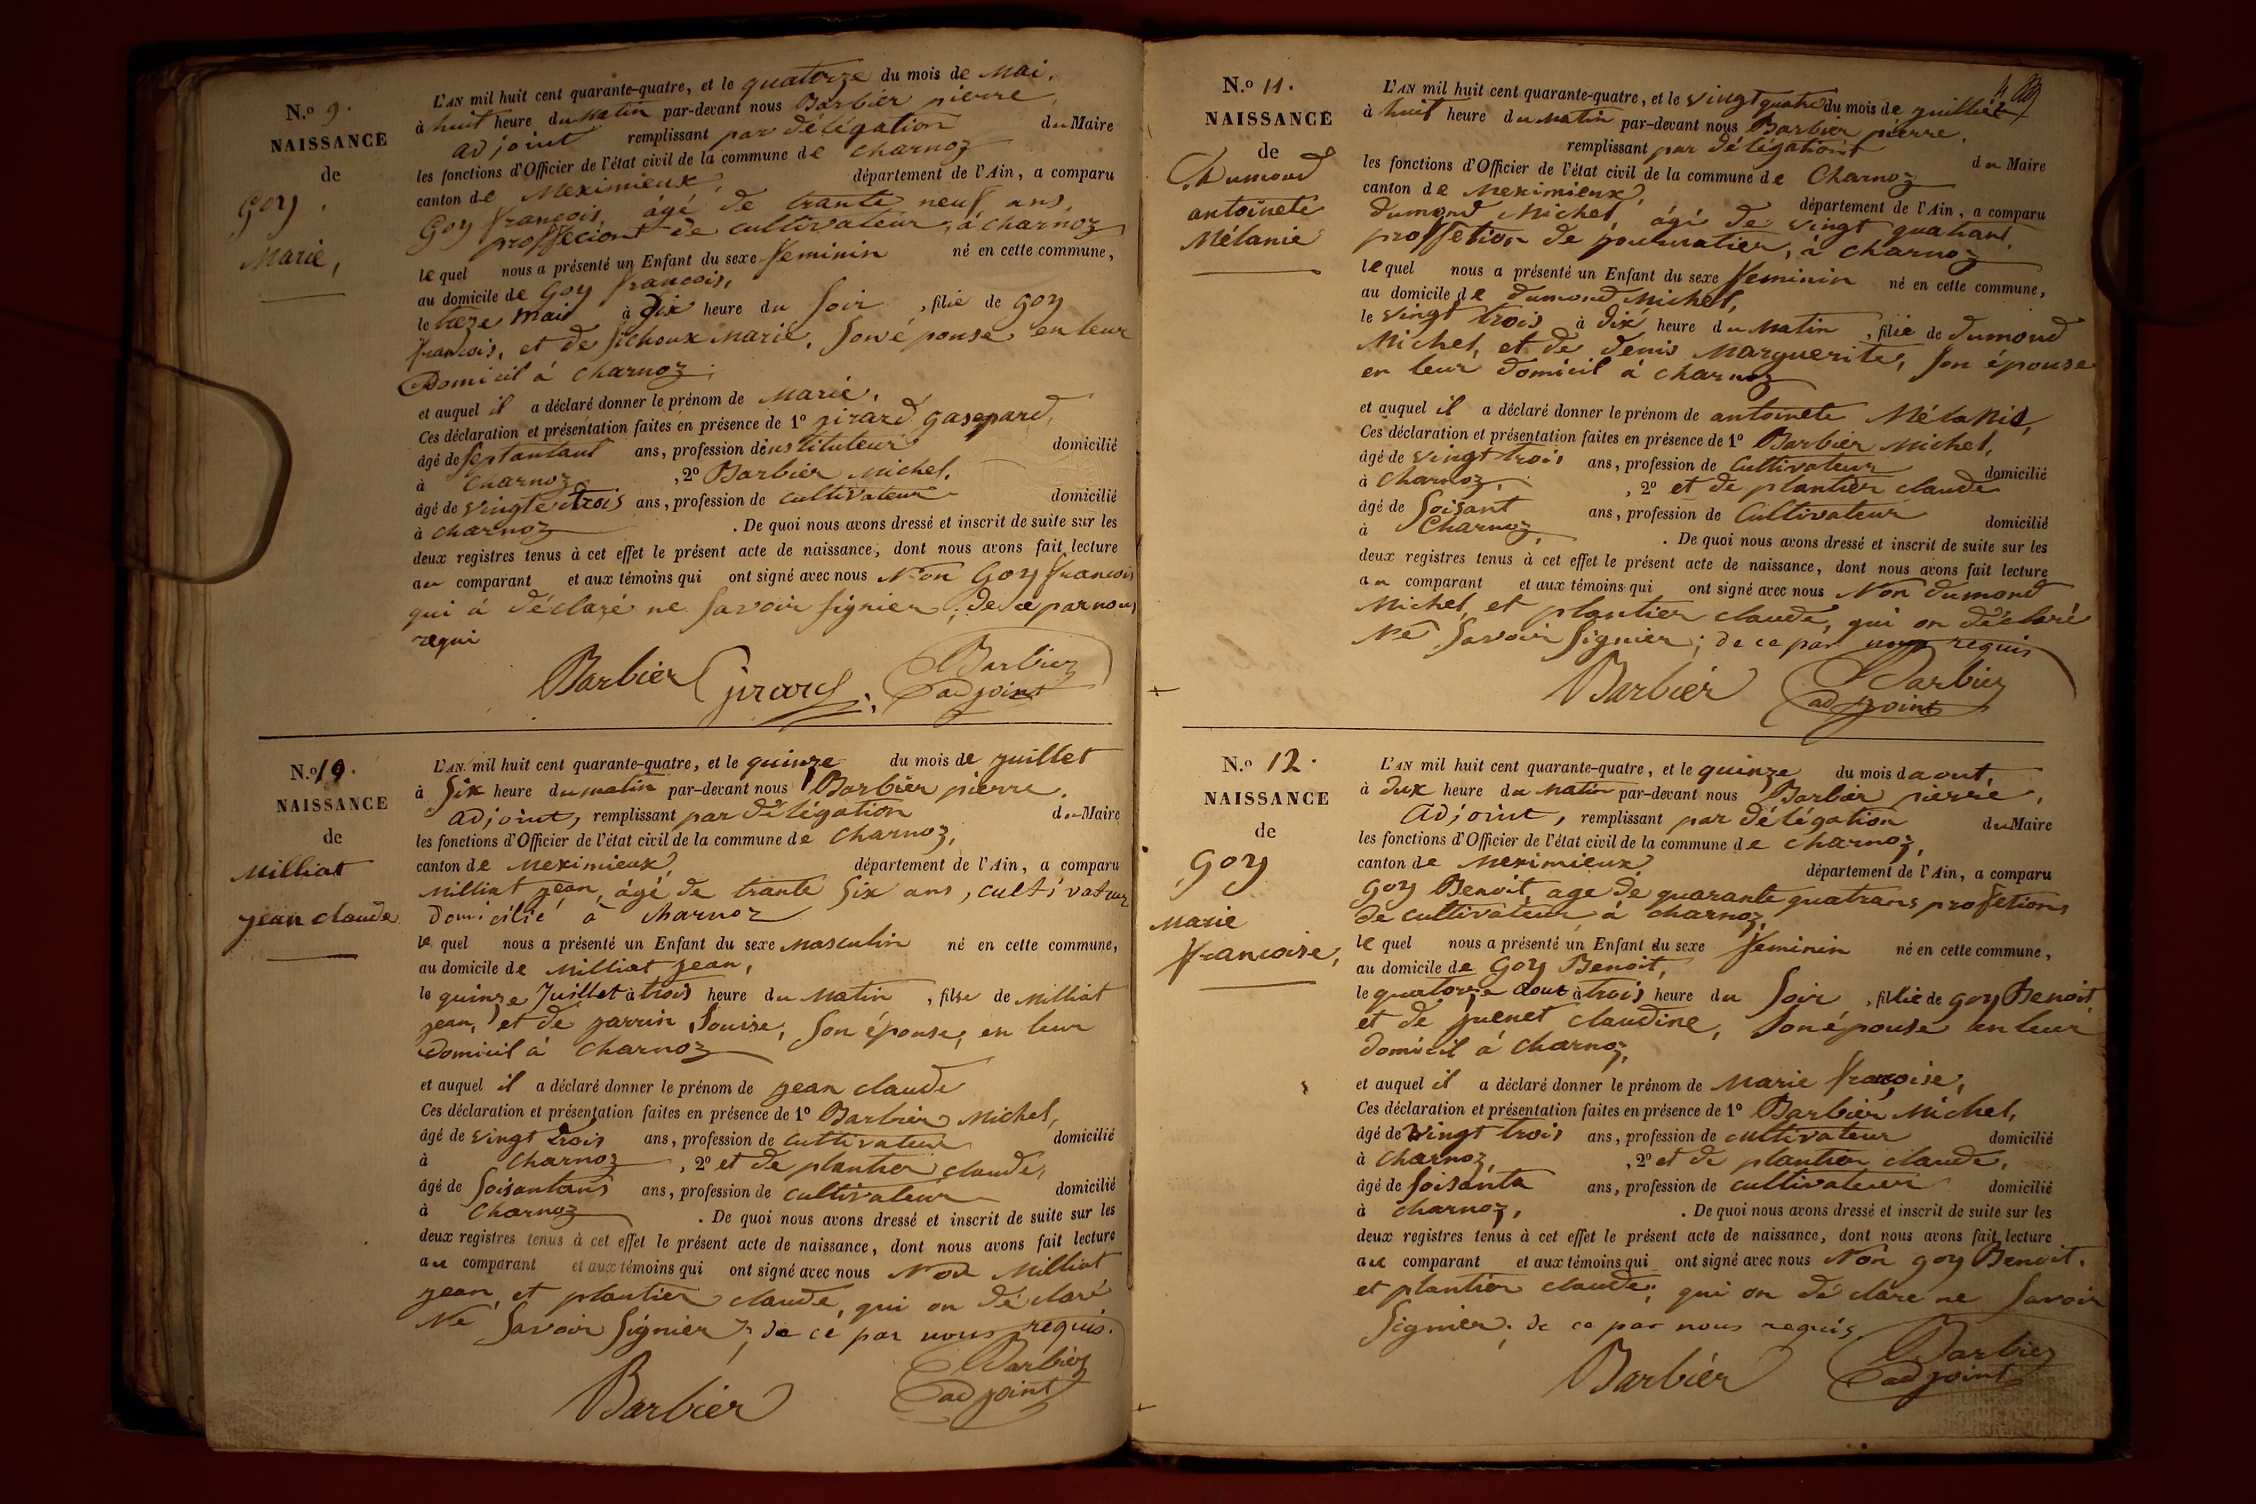 N.o 9.
NAISSANCE
de
Goy.
Marie,
L'AN mil huit cent quarante-quatre, et le quatorze du mois de Mai,
à huit heure du Matin par-devant nous Barbier pierre,
adjoint remplissant par délégation du Maire
les fonctions d'Officier de l'état civil de la commune de Charnoz
canton de Meximieux, département de l'Ain, a comparu
Goy françois, âgé de trante neuf ans,
proffeciont de cultivateur, à charnoz
le quel nous a présenté un Enfant du sexe feminin né en cette commune,
au domicile de Goy francois,
le treze Mai à Dix heure du Soir, filie de Goy
francois, et de Marie, Son épouse en leur
Domicil à charnoz,
et auquel il a déclaré donner le prénom de Marie,
Ces déclaration et présentation faites en présence de 1º girard gaspard,
âgé de septantant ans, profession deinstituteur domicilié
à Charnoz, 2º Barbier Michel,
âgé de vingtetrois ans, profession de cultivateur domicilié
à charnoz. De quoi nous avons dressé et inscrit de suite sur les
deux registres tenus à cet effet le présent acte de naissance, dont nous avons fait lecture
au comparant et aux témoins qui ont signé avec nous Non Goy francois
qui à déclaré ne savoir signier, de ce par nous
requi
Barbier Girard Barbier
adjoint
N.o 10.
NAISSANCE
de
Milliat
jean claude
L'AN mil huit cent quarante-quatre, et le quinze du mois de juillet
à Six heure du matin par-devant nous Barbier pierre,
adjoint, remplissant par délégation du Maire
les fonctions d'Officier de l'état civil de la commune de Charnoz,
canton de Meximieux, département de l'Ain, a comparu
Milliat jean, âgé de trante Six ans, cultivateur
domicilié à charnoz
le quel nous a présenté un Enfant du sexe Masculin né en cette commune,
au domicile de Milliat jean,
le quinze Juillet à trois heure du Matin, filse de Milliat
jean, et de Louise, Son épouse, en leur
Domicil à Charnoz
et auquel il a déclaré donner le prénom de jean claude
Ces déclaration et présentation faites en présence de 1º Barbier Michel,
âgé de vingt trois ans, profession de Cultivateur domicilié
à Charnoz, 2º et de plantier claude,
âgé de Soisantans ans, profession de cultivateur domicilié
à Charnoz. De quoi nous avons dressé et inscrit de suite sur les
deux registres tenus à cet effet le présent acte de naissance, dont nous avons fait lecture
au comparant et aux témoins qui ont signé avec nous Non Milliat
jean, et plantier claude, qui on déclaré
Ne Savoir Signier, de ce par nous requis.
Barbier Barbier
adjoint
N.o 11.
NAISSANCE
de
Dumond
antoinete
Mélanie
L'AN mil huit cent quarante-quatre, et le vingtquatre du mois de juillet
à huit heure du Matin par-devant nous Barbier pierre,
remplissant par délégationt du Maire
les fonctions d'Officier de l'état civil de la commune de Charnoz
canton de Meximieux, département de l'Ain, a comparu
dumond Michel âgé de vingt quatrant,
proffetion de, à charnoz
le quel nous a présenté un Enfant du sexe feminin né en cette commune,
au domicile de dumond Michel,
le vingt trois à dix heure du Matin, filie de dumond
Michel, et de denis Marguerite, Son épouse
en leur Domicil à charnoz
et auquel il a déclaré donner le prénom de antoinete Mélanie,
Ces déclaration et présentation faites en présence de 1º Barbier Michel,
âgé de vingt trois ans, profession de Cultivateur domicilié
à Charnoz, 2º et de plantier claude
âgé de Soisant ans, profession de Cultivateur domicilié
à Charnoz,. De quoi nous avons dressé et inscrit de suite sur les
deux registres tenus à cet effet le présent acte de naissance, dont nous avons fait lecture
au comparant et aux témoins qui ont signé avec nous Non dumond
Michel, et plantier claude, qui on déclaré
Ne Savoir Signier; de ce par nous requis
Barbier Barbier
adjoint
N.o 12.
NAISSANCE
de
Goy
Marie
francoise,
L'AN mil huit cent quarante-quatre, et le quinze du mois daout,
à dix heure du Matin par-devant nous Barbier pierre,
adjoint, remplissant par délégation du Maire
les fonctions d'Officier de l'état civil de la commune de charnoz,
canton de Meximieux département de l'Ain, a comparu
Goy Benoit, age de quarante quatrans profetions
de cultivateur à charnoz,
le quel nous a présenté un Enfant du sexe feminin né en cette commune,
au domicile de Goy Benoit,
le quatorze aout à trois heure du Soir, fillie de goy Benoit
et de juenet claudine, Son épouse en leur
domicil à charnoz,
et auquel il a déclaré donner le prénom de Marie françoise,
Ces déclaration et présentation faites en présence de 1º Barbier Michel,
âgé de vingt trois ans, profession de cultivateur domicilié
à charnoz, 2º et de plantier claude,
âgé de Soisanta ans, profession de cultivateur domicilié
à charnoz,. De quoi nous avons dressé et inscrit de suite sur les
deux registres tenus à cet effet le présent acte de naissance, dont nous avons fait lecture
au comparant et aux témoins qui ont signé avec nous Non goy Benoit.
et plantier claude, qui on déclare ne Savoir
Signier, de ce par nous requis
Barbier Barbier
adjoint